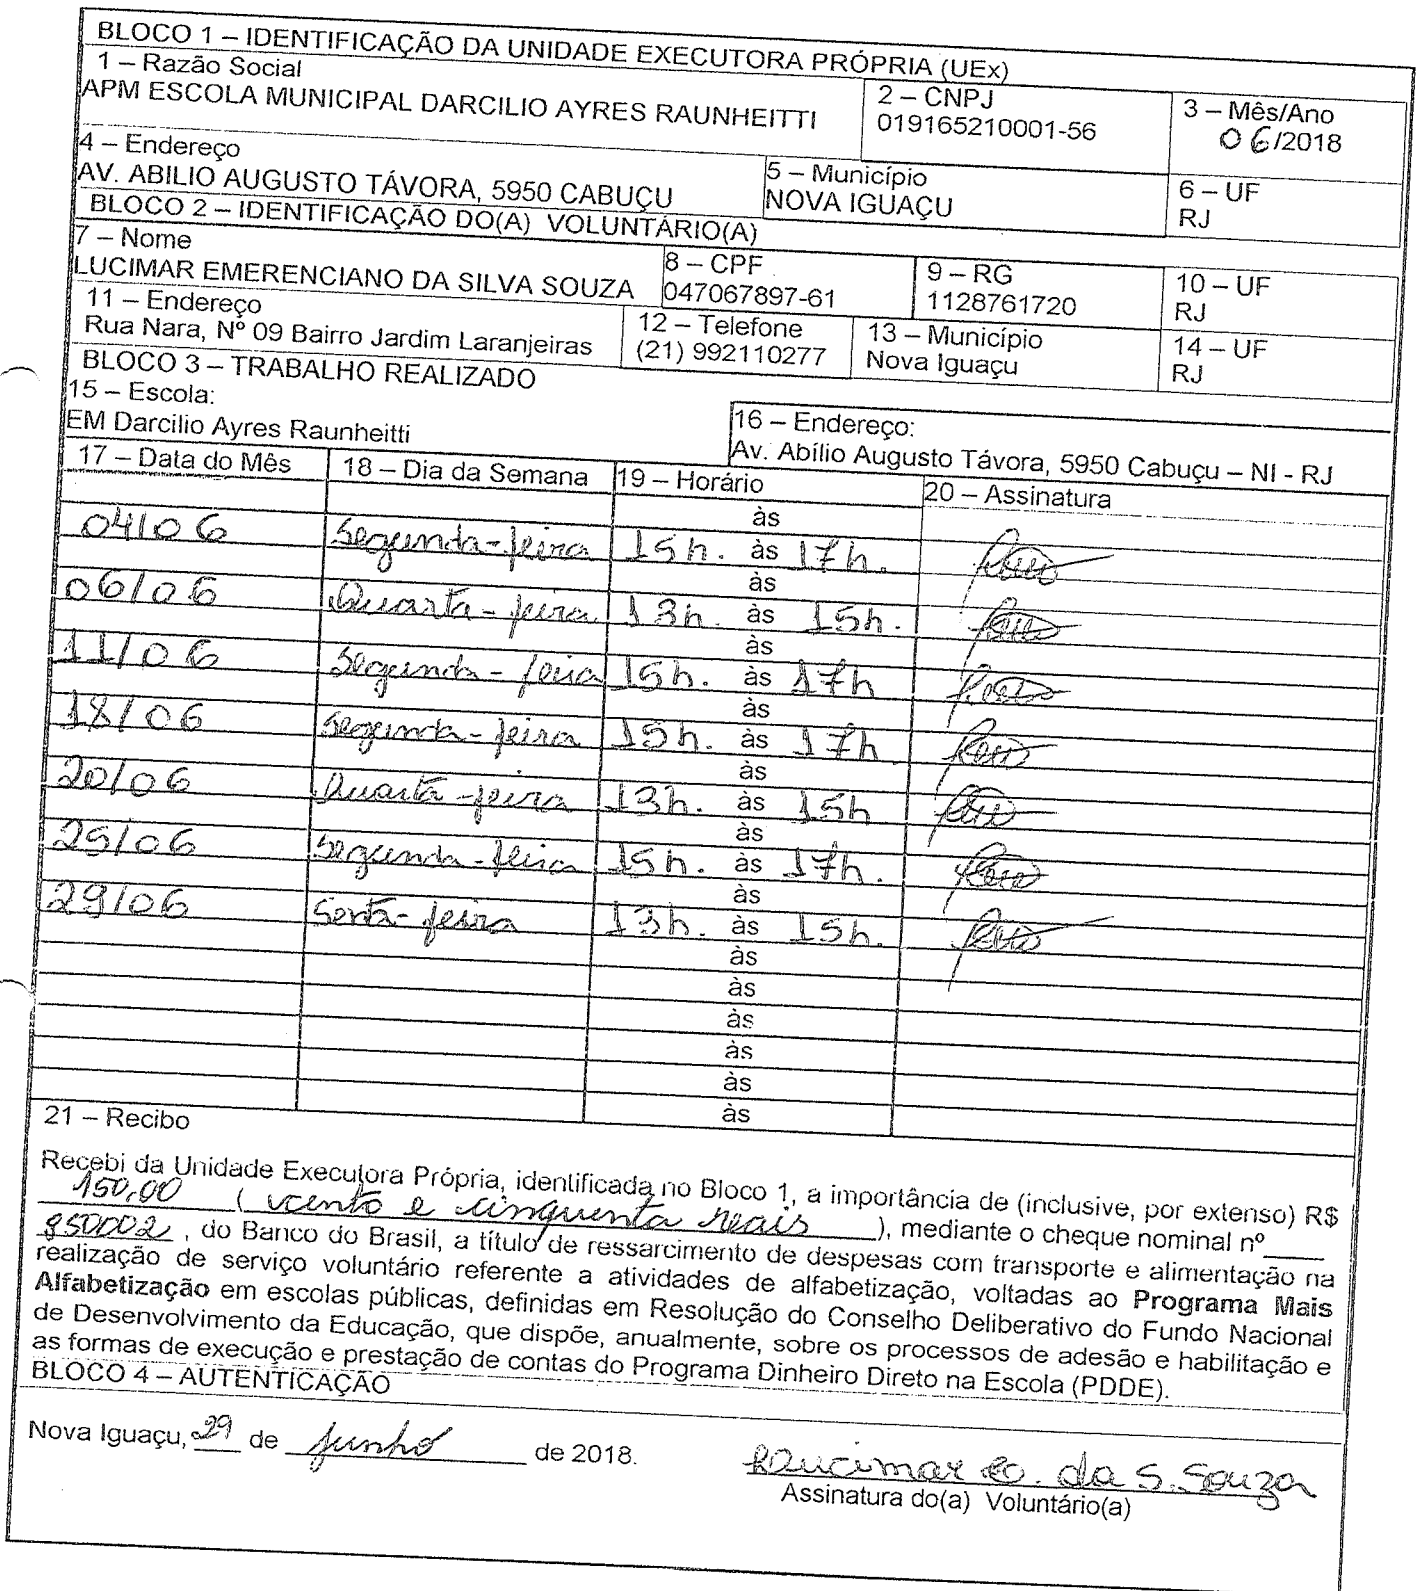 BLOCO 1 – IDENTIFICAÇÃO DA UNIDADE EXECUTORA PRÓPRIA (UEx)
1 – Razão Social
APM ESCOLA MUNICIPAL DARCILIO AYRES RAUNHEITTI
2 – CNPJ
019165210001-56
3 – Mês/Ano
06/2018
4 – Endereço
AV. ABILIO AUGUSTO TÁVORA, 5950 CABUÇU
5 – Município
NOVA IGUAÇU
6 – UF
RJ
BLOCO 2 – IDENTIFICAÇÃO DO(A) VOLUNTÁRIO(A)
7 – Nome
LUCIMAR EMERENCIANO DA SILVA SOUZA
8 – CPF
047067897-61
9 – RG
1128761720
10 – UF
RJ
11 – Endereço
Rua Nara, Nº 09 Bairro Jardim Laranjeiras
12 – Telefone
(21) 992110277
13 – Município
Nova Iguaçu
14 – UF
RJ
BLOCO 3 – TRABALHO REALIZADO
15 – Escola:
EM Darcilio Ayres Raunheitti
16 – Endereço:
Av. Abílio Augusto Távora, 5950 Cabuçu – NI - RJ
17 – Data do Mês 18 – Dia da Semana 19 – Horário 20 – Assinatura
às
04/06 Segunda-feira 15h. às 17h.
às
06/06 Quarta-feira 13h. às 15h.
às
11/06 Segunda-feira 15h. às 17h
às
18/06 Segunda-feira 15h. às 17h
às
20/06 Quarta-feira 13h. às 15h
às
25/06 Segunda-feira 15h. às 17h.
às
29/06 Sexta-feira 13h. às 15h.
às
às
às
às
às
às
21 – Recibo
Recebi da Unidade Executora Própria, identificada no Bloco 1, a importância de (inclusive, por extenso) R$
150,00 ( cento e cinquenta reais ), mediante o cheque nominal nº____
850002 , do Banco do Brasil, a título de ressarcimento de despesas com transporte e alimentação na
realização de serviço voluntário referente a atividades de alfabetização, voltadas ao Programa Mais
Alfabetização em escolas públicas, definidas em Resolução do Conselho Deliberativo do Fundo Nacional
de Desenvolvimento da Educação, que dispõe, anualmente, sobre os processos de adesão e habilitação e
as formas de execução e prestação de contas do Programa Dinheiro Direto na Escola (PDDE).
BLOCO 4 – AUTENTICAÇÃO
Nova Iguaçu, 29 de junho de 2018.
Lucimar E. da S. Souza
Assinatura do(a) Voluntário(a)